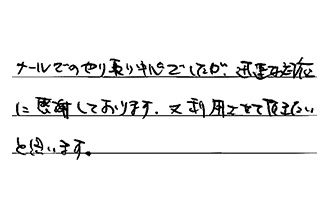 メールでのやり取り中心でしたが、迅速な対応
に感謝しております。又利用させて頂きたい
と思います。